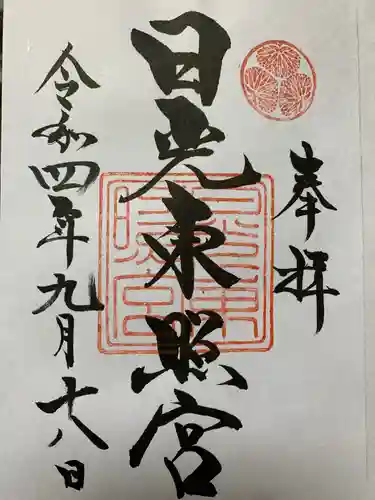 奉拝
日光東照宮
令和四年九月十八日